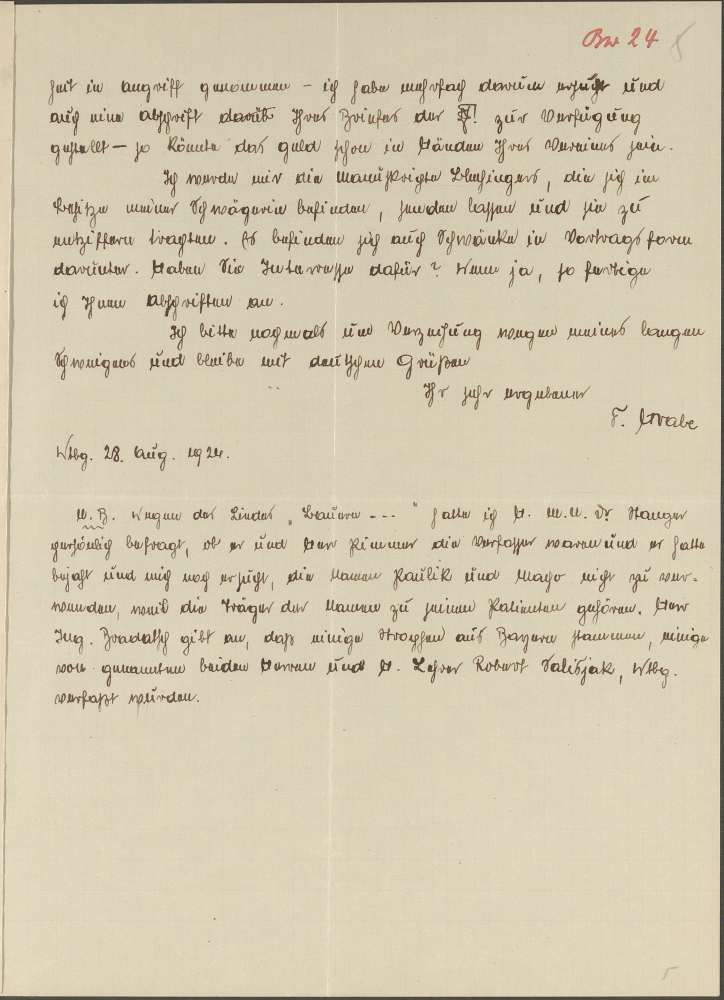 Bw 24
heit in Angriff genommen – ich habe mehrfach darum ersucht und
auch eine Abschrift Ihres Briefes der zur Verfügung
gestellt – so könnte das Geld schon in Händen Ihres Vereines sein.
Ich werde mir die Manuskripte Blehingers, die sich im
Besitze meiner Schwägerin befinden, senden lassen und sie zu
entziffern trachten. Es befinden sich auch Schwänke in Vortragsform
darunter. Haben Sie Interesse dafür? Wenn ja, so fertige
ich Ihnen Abschriften an.
Ich bitte nochmals um Verzeihung wegen meines langen
Schweigens und bleibe mit deutschen Grüßen
Ihr sehr ergebener
F. Grabe
Wtbg. 28. Aug. 1924.
N.B. Wegen des Liedes „Bauern ---" hatte ich H. M.U. Dr Stanger
persönlich befragt, ob er und Herr Kimmer die Verfasser waren und er hatte
bejaht und mich noch ersucht, die Namen Paulik und Mayo nicht zu ver-
wenden, weil die Träger der Namen zu seinen Patienten gehören. Herr
Ing. Bradatsch gibt an, daß einige Strophen aus Bayern stammen, einige
von genannten beiden Herren und H. Lehrer Robert Salisjak, Wtbg.
verfaßt wurden.